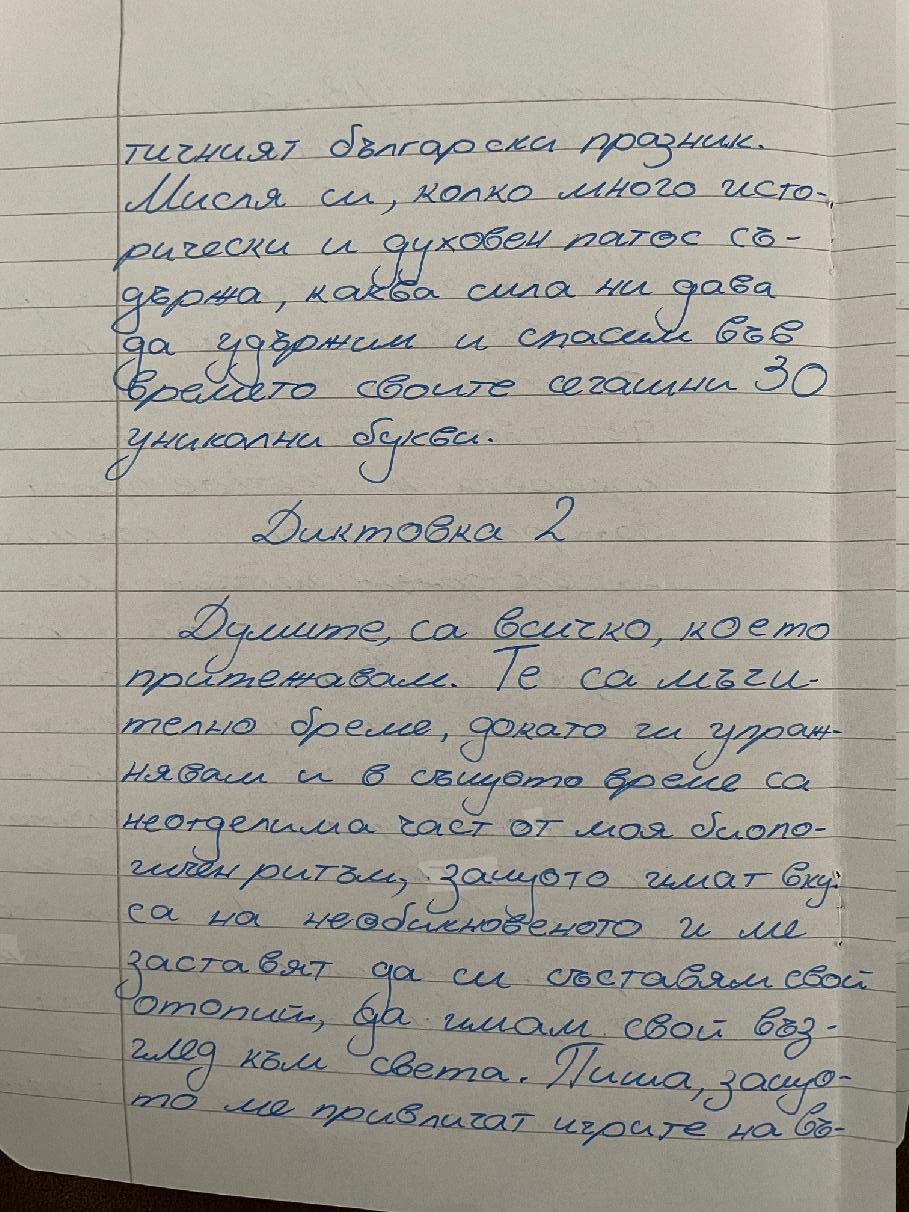 тичният български празник.
Мисля си, колко много исто-
рически и духовен патос съ-
държа, каква сила ни дава
да удържим и спасим във
времето своите сегашни 30
уникални букви.
Диктовка 2
Думите, са всичко, което
притежавам. Те са мъчи-
телно бреме, докато ги упраж-
нявам и в същото време са
неотделима част от моя биоло-
гичен ритъм, защото имат вку-
са на необикновеното и ме
заставят да си съставям свой
отопии, да имам свой въз-
глед към света. Пиша, защо-
то ме привличат игрите на въ-